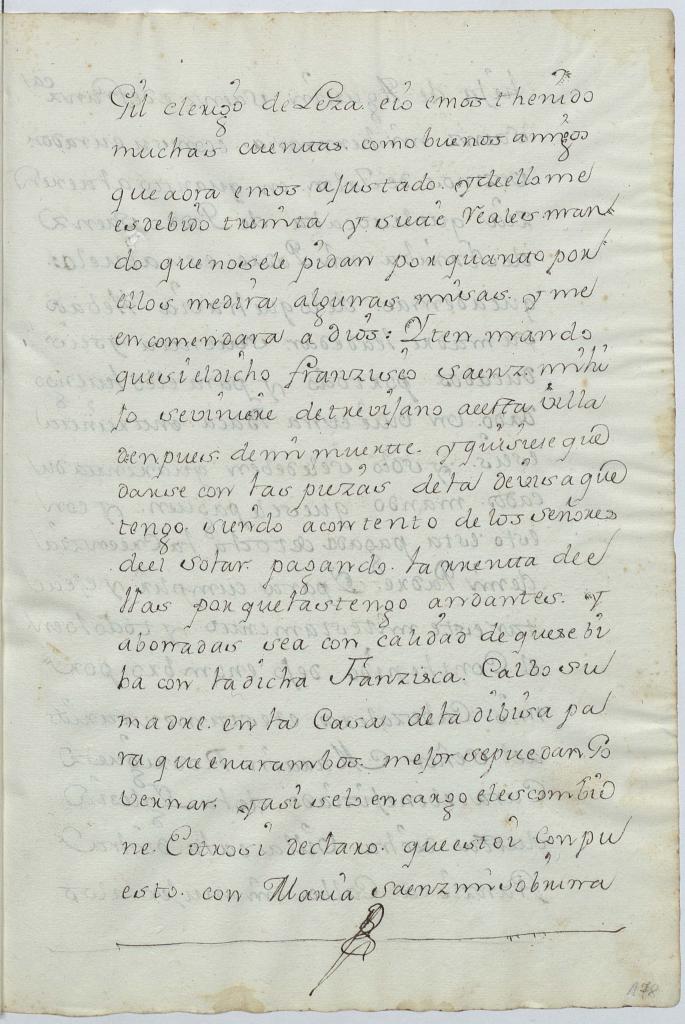 Gil clerigo de Leza. eio emos thenido
muchas cuenttas como buenos amigos
que aora emos ajustado. y de ello me
es debido treinta y. siette Reales man
do que no se le pidan por quanto por
ellos me dira algunas misas. y me
encomendara a Dios: Yten mando
que si el dicho Franzisco Saenz. mi hi
jo se viniere de trevijano a estta villa
denpues. de mi muertte. y quisiese que
darse con las piezas de la devisa que
tengo. siendo a contento de los señores
de el solar. pagando. la rrentta de e
llas porque las tengo andantes. y
aborradas sea con calidad de que se bi
ba con la dicha Franzisca. Calbo su
madre. en la Casa de la dibisa pa
ra que enttrambos. mejor se puedan Go
vernar. y asi se lo encargo e les combie
ne. Eotrosi declaro. que estoi conpu
esto. con Maria Saenz mi sobrina
178